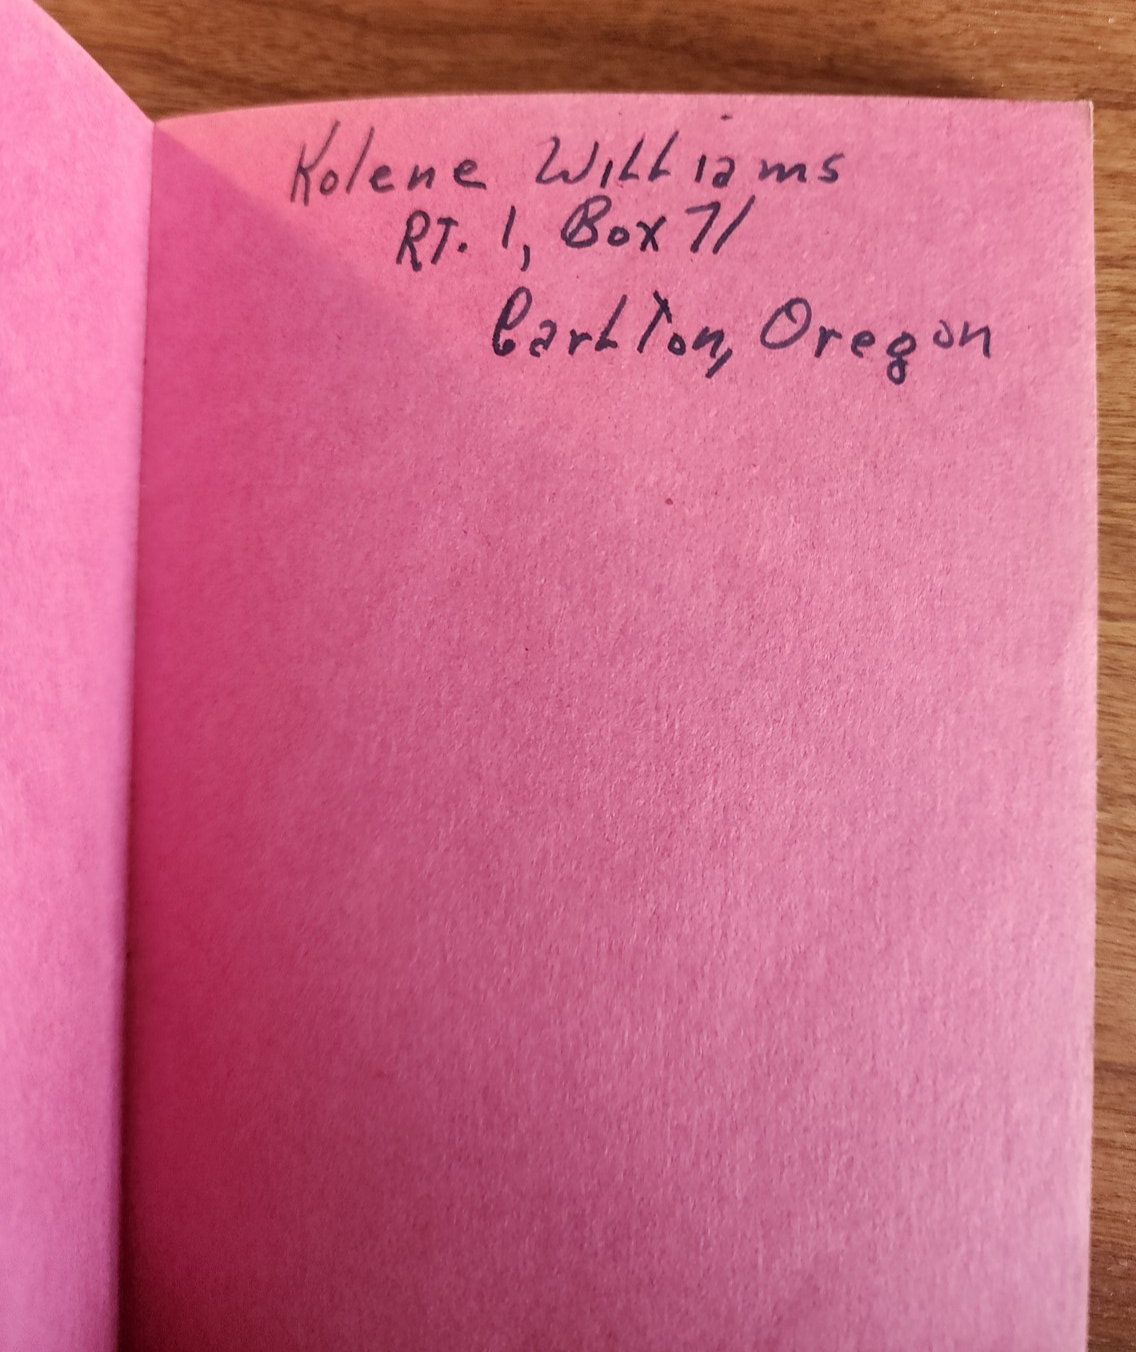 Kolene Williams
RT. 1, Box 71
Carlton, Oregon